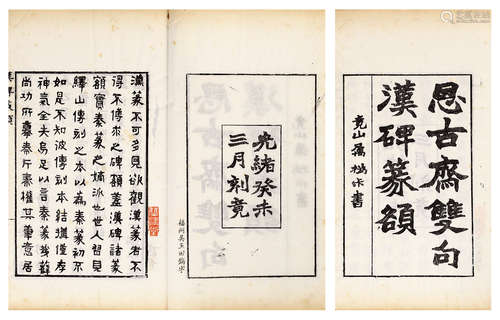 思古齋雙句
漢碑篆額
竟山屬 書
光緒癸未
三月刻竟
福州吳玉田鐫字
漢篆不可多見欲觀漢篆者不
得不傳求之碑額蓋漢碑諸篆
額實秦篆之嫡派也世人習見
繹山傳刻之本以為秦篆初不
如是不知彼傳刻本結構僅存
神氣全失烏足以言秦篆哉
尚功所 秦斤秦權其筆意居